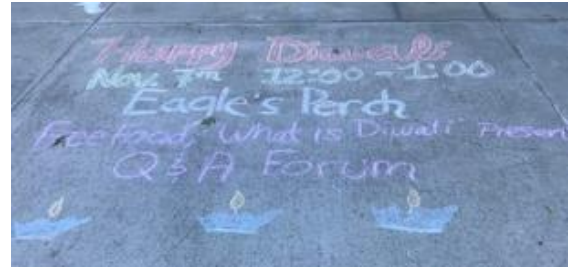 Happy Diwali
Nov 7th 12:00 - 1:00
Eagle's Perch
Free food, "What is Diwali" Presen
Q & A Forum